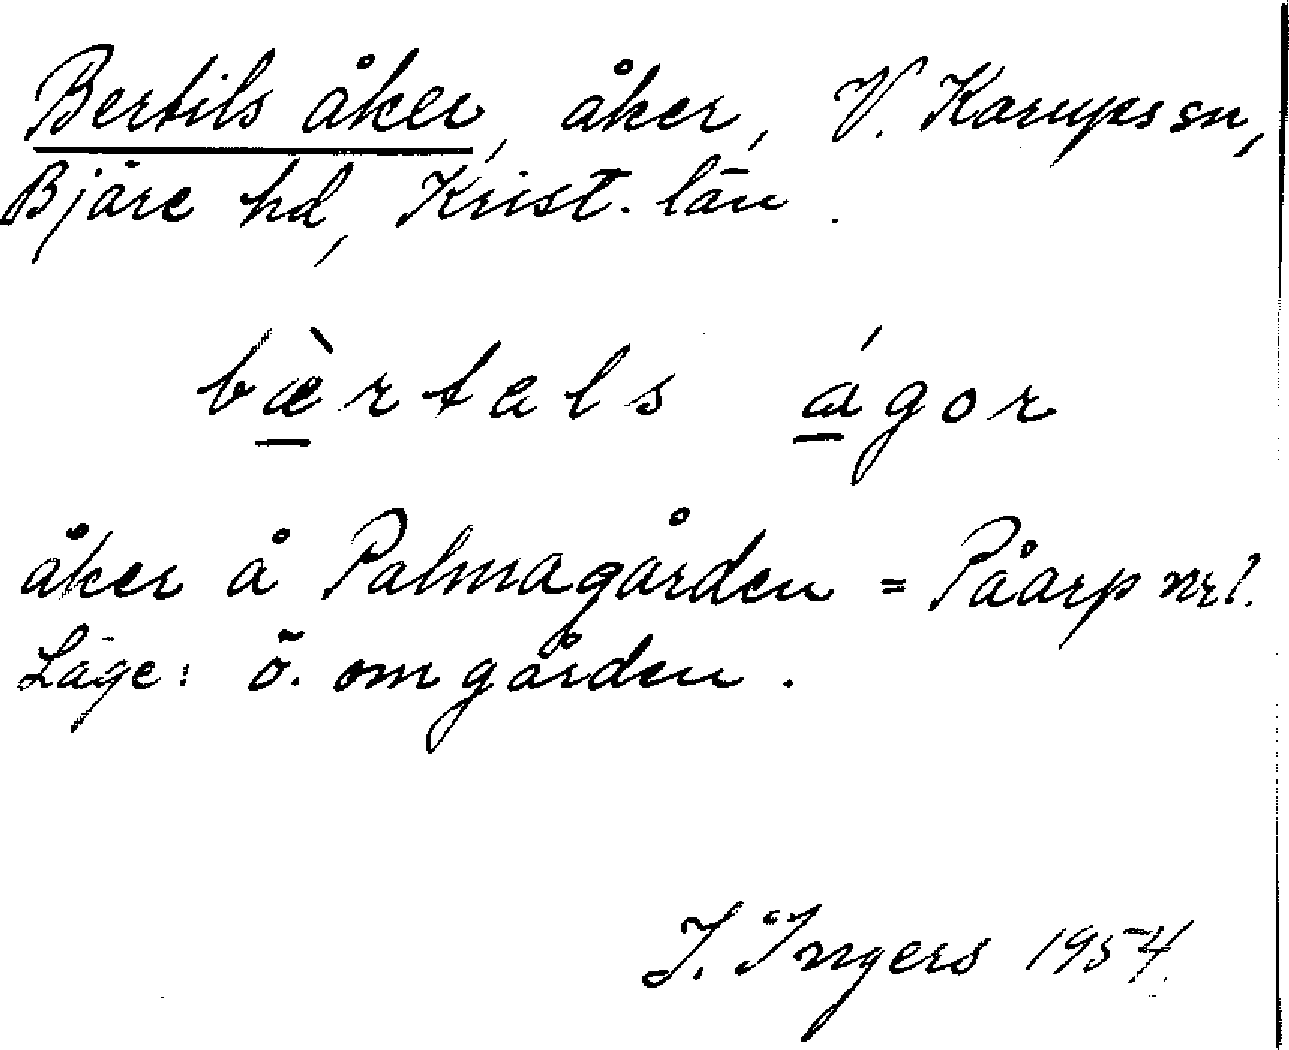 Bertils åker, åker, V. Karups sn,
Bjäre hd, Krist. län.
bæ̀rtals ágor
åker å Palmagården = Påarp nr 1.
Läge: ö. om gården.
I. Ingers 1954.